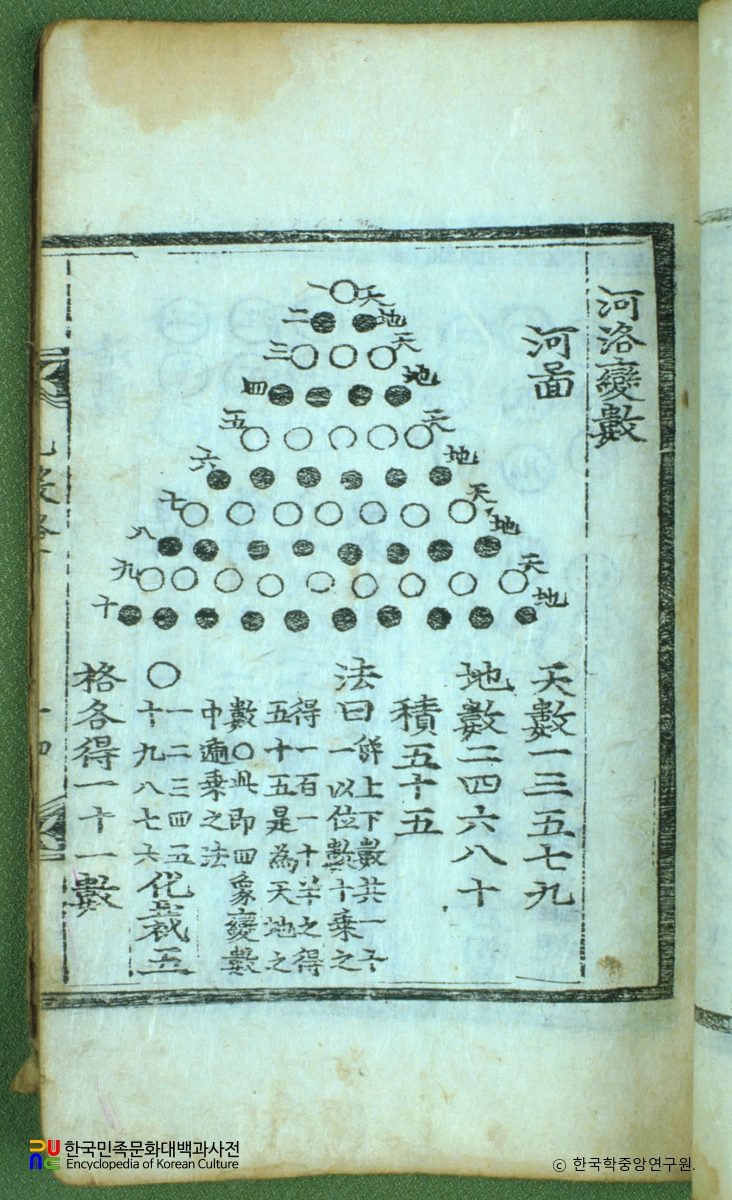 河洛變數
河啚
一 天
二 地
三 天
四 地
五 天
六 地
七 天
八 地
九 天
十 地
天數一三五七九
地數二四六八十
積五十五
法曰 倂上下數共一十
一以位數十乘之
得一百一十半之得
五十五是為天地之
數〇此即四象變數
中遍乘之法
〇 一二三四五
十九八七六 化裁五
格各得一十一數
한국민족문화대백과사전
Encyclopedia of Korean Culture
© 한국학중앙연구원.